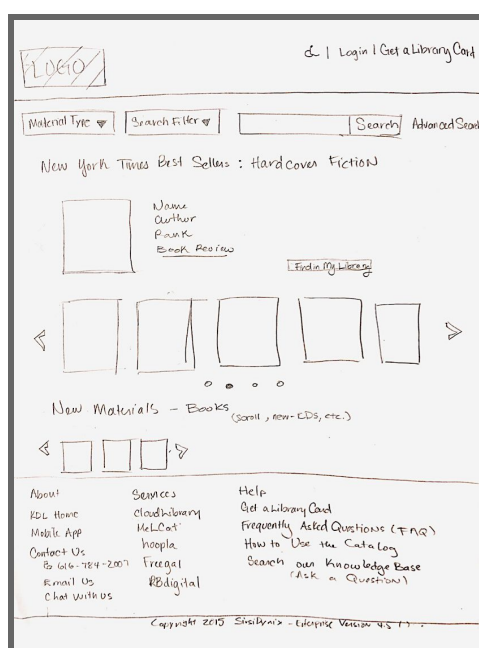 LOGO
| Login | Get a Library Card
Material Type
Search Filter
Search
Advanced Search
New York Times Best Sellers : Hardcover Fiction
Name
Author
Rank
Book Review
Find in My Library
New Materials - Books
(scroll, new-CDs, etc.)
About
KDL Home
Mobile App
Contact Us
616-784-2007
Email Us
Chat With Us
Services
cloudLibrary
MeLCat
hoopla
Freegal
RBdigital
Help
Get a Library Card
Frequently Asked Questions (FAQ)
How to Use the Catalog
Search our Knowledge Base
(Ask a Question)
Copyright 2015 SirsiDynix - Enterprise Version 4.5